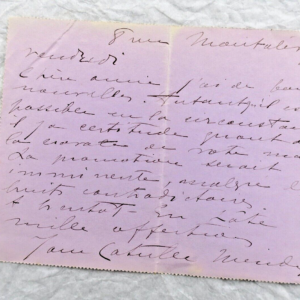 8 rue Montalé
vendredi
Chère amie j'ai de bo
nouvelles. Autant qu'il e
possible en la circonstan
il y a certitude quant à
la cravate de votre ma
La promotion serait
imminente, malgré l
bruits contradictoires.
A bientôt en hâte
mille affections
Jane Catulle Mend